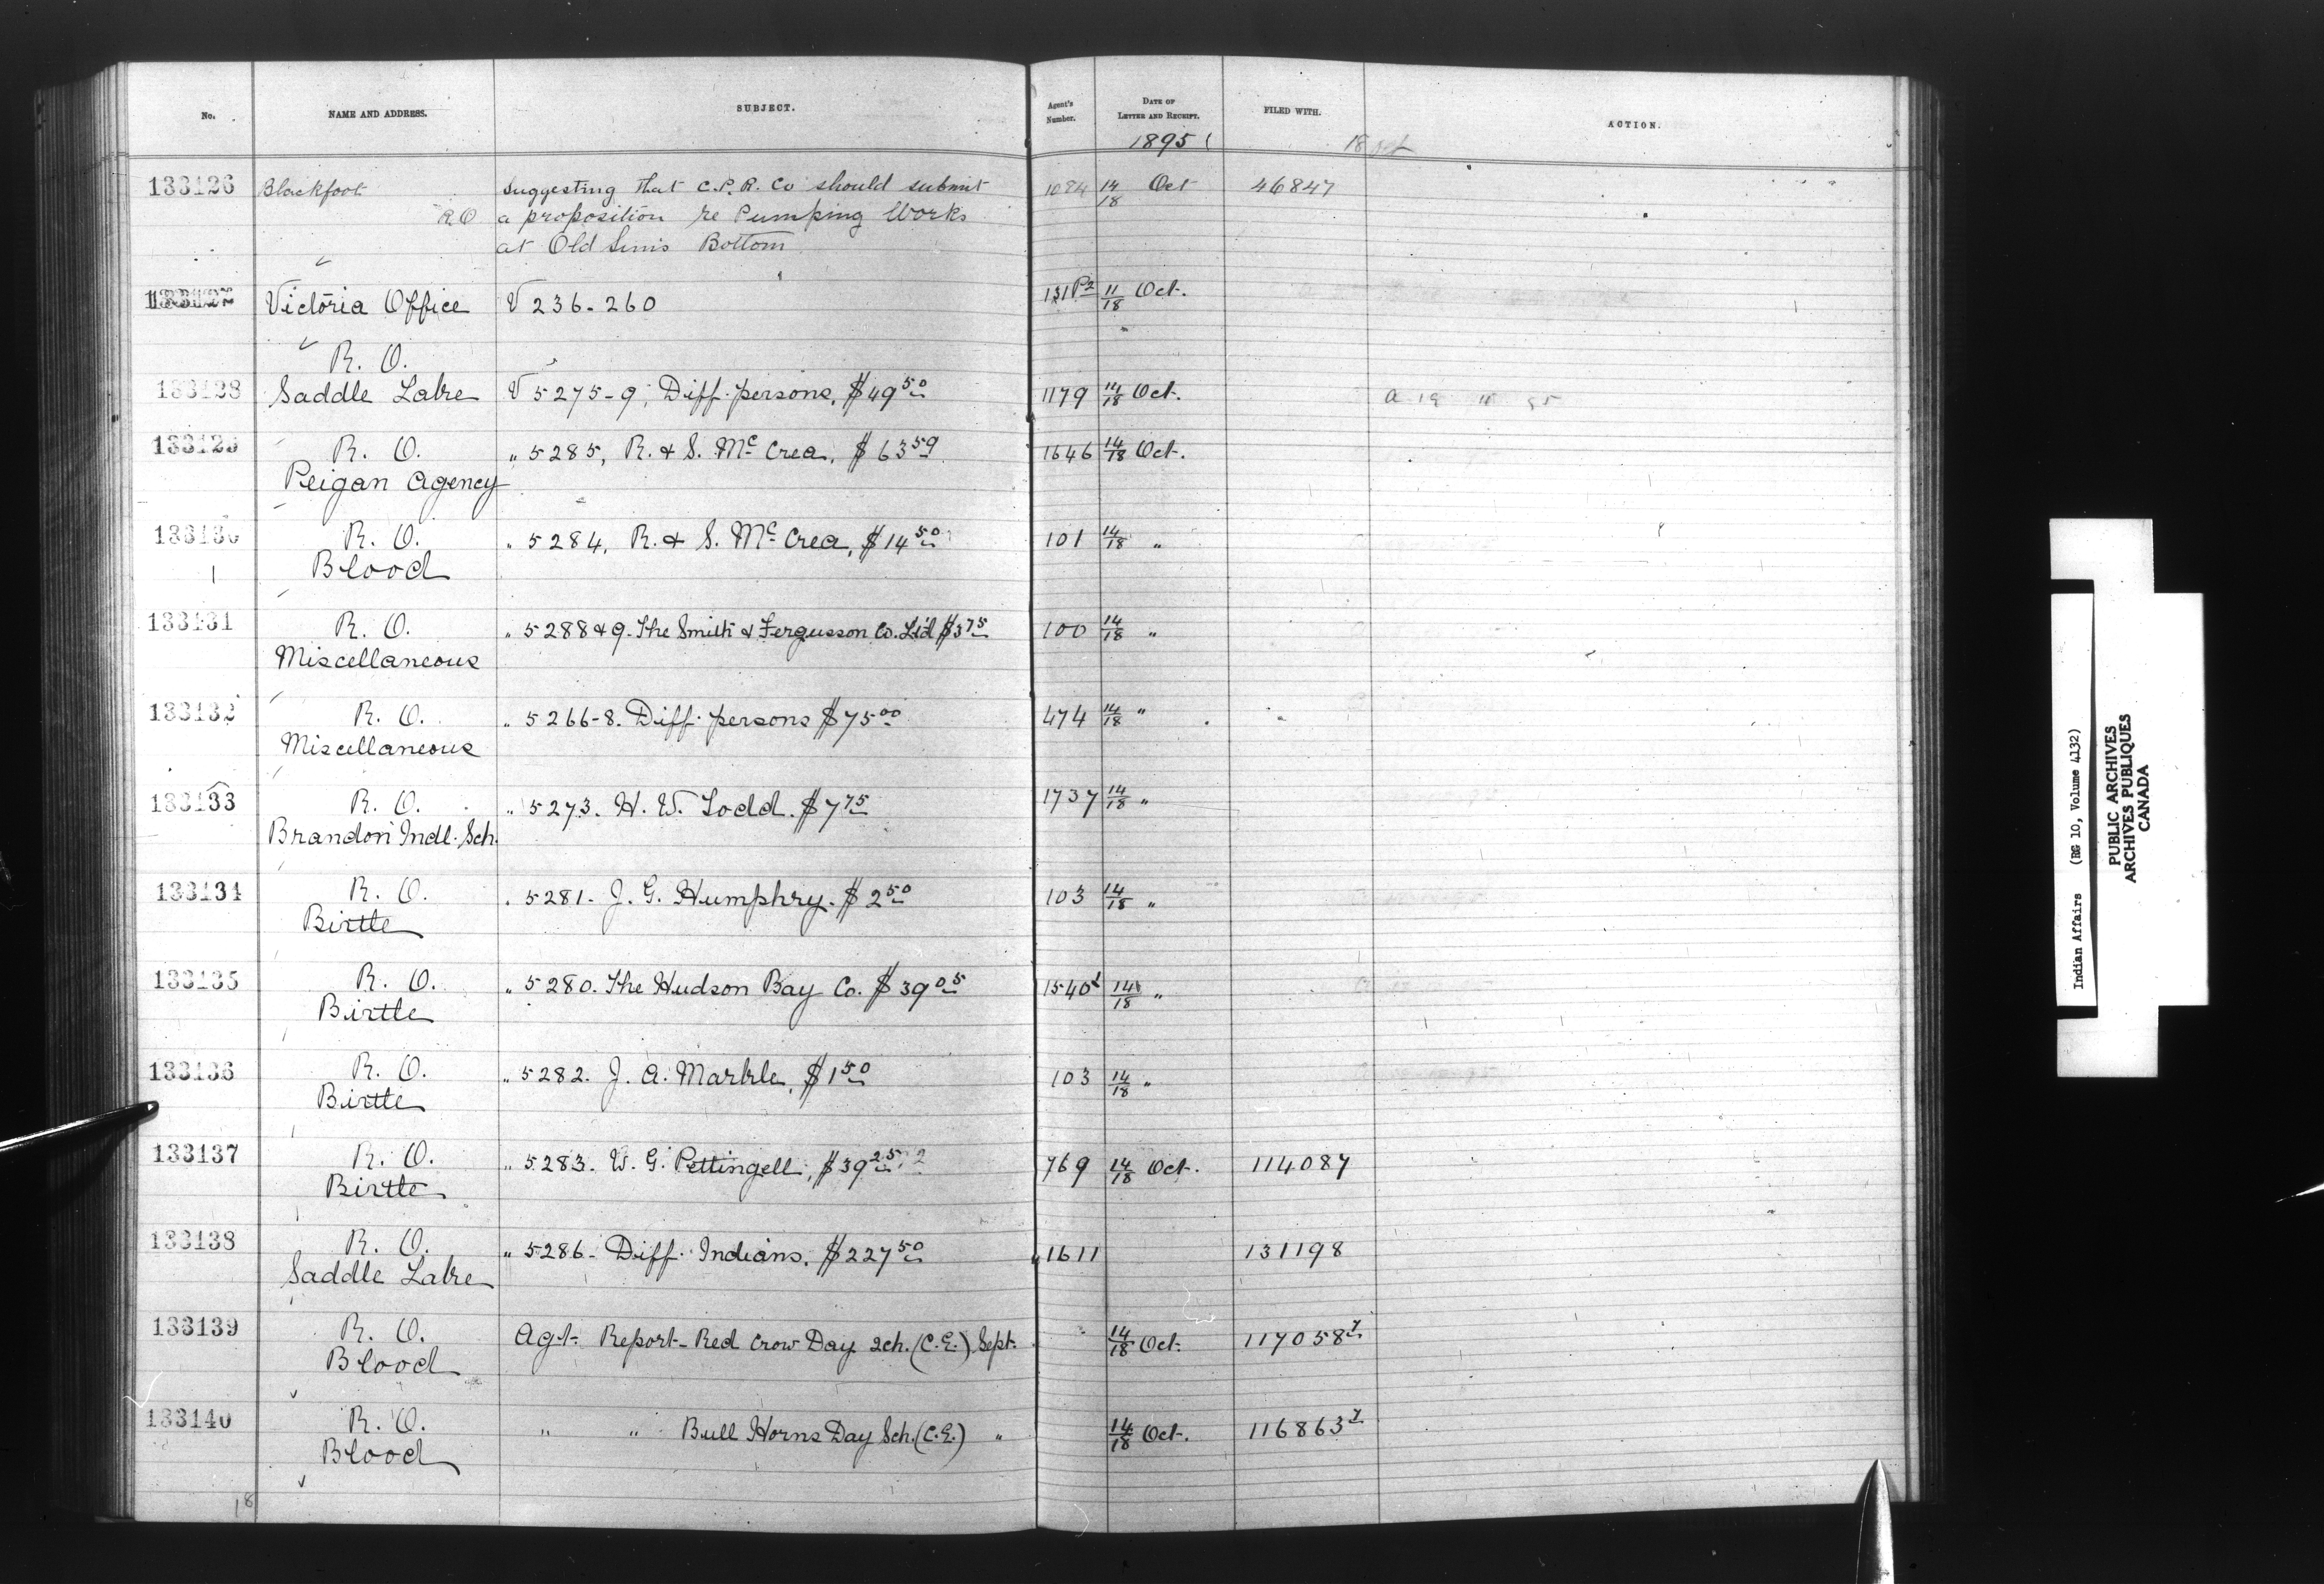 No. NAME AND ADDRESS. SUBJECT. Agent's Number. DATE OF LETTER AND RECEIPT. FILED WITH. ACTION.
1895
133126 Blackfoot Suggesting that C.P.R. Co should submit 1084 14/18 Oct 46847
R.O a proposition re Pumping Works
at Old Suns Bottom
Victoria Office V 236-260 131 11/18 Oct.
R. O.
133128 Saddle Lake V 5275-9, Diff. persons, $49 50 1179 14/18 Oct.
133129 R. O. " 5285, R. & S. Mc Crea, $63 59 1646 14/18 Oct.
Peigan Agency
133130 R. O. " 5284, R. & S. Mc Crea, $14 50 101 14/18 "
Blood
133131 R. O. " 5288 & 9. The Smith & Fergusson Co. Ltd $3 75 100 14/18 "
Miscellaneous
133132 R. O. " 5266-8. Diff. persons $75 00 474 14/18 "
Miscellaneous
133133 R. O. " 5273. H. W. Todd. $7 75 1737 14/18 "
Brandon Indl. Sch.
133134 R. O. " 5281. J. G. Humphry. $2 50 103 14/18 "
Birtle
133135 R. O. " 5280. The Hudson Bay Co. $39 05 1540 14/18 "
Birtle
133136 R. O. " 5282. J. A. Markle, $1 50 103 14/18 "
Birtle
133137 R. O. " 5283. W. G. Pettingell, $39 25 769 14/18 Oct. 114087
Birtle
133138 R. O. " 5286- Diff. Indians, $227 50 1611 131198
Saddle Lake
133139 R. O. Agt. Report- Red Crow Day Sch. (C.E.) Sept. 14/18 Oct. 117058
Blood
133140 R. O. " " Bull Horns Day Sch. (C.E.) " 14/18 Oct. 116863
Blood
18
Indian Affairs (RG 10, Volume 4132)
PUBLIC ARCHIVES
ARCHIVES PUBLIQUES
CANADA